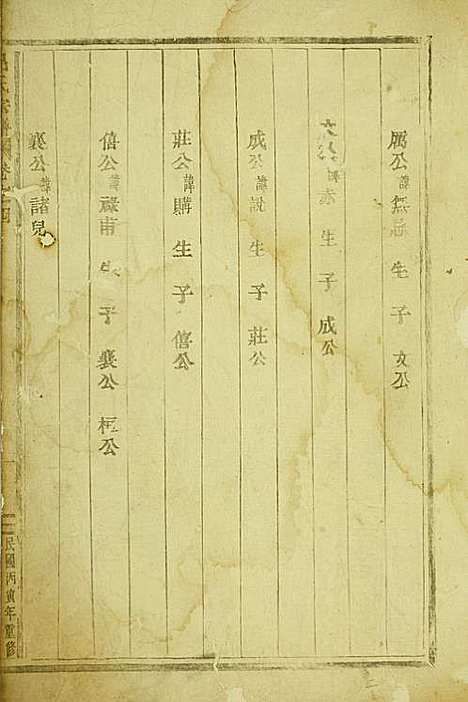 厲公諱無忌生子文公
文公諱赤生子成公
成公諱說生子莊公
莊公諱購生子僖公
僖公諱祿甫生子襄公桓公
襄公諱諸兒
民國丙寅年重修